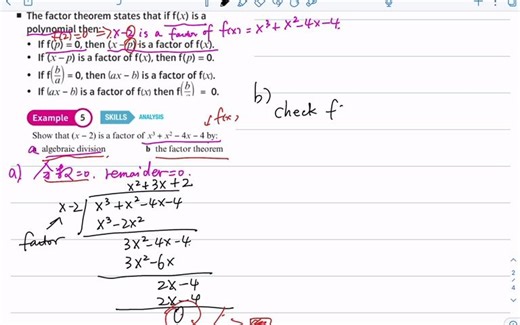 The factor theorem states that if f(x) is a
polynomial then: f(2)=0 => x-2 is a factor of f(x) = x³+x²-4x-4.
• If f(p) = 0, then (x – p) is a factor of f(x).
• If (x – p) is a factor of f(x), then f(p) = 0.
• If f(b/a) = 0, then (ax – b) is a factor of f(x).
• If (ax – b) is a factor of f(x) then f(b/ ) = 0.
b)
check f
Example 5 SKILLS ANALYSIS
f(x)
Show that (x – 2) is a factor of x³ + x² – 4x – 4 by:
a algebraic division b the factor theorem
a) remainder=0.
x²+3x+2
x-2 x³+x²-4x-4
x³-2x²
factor
3x²-4x-4
3x²-6x
2x-4
2x-4
0